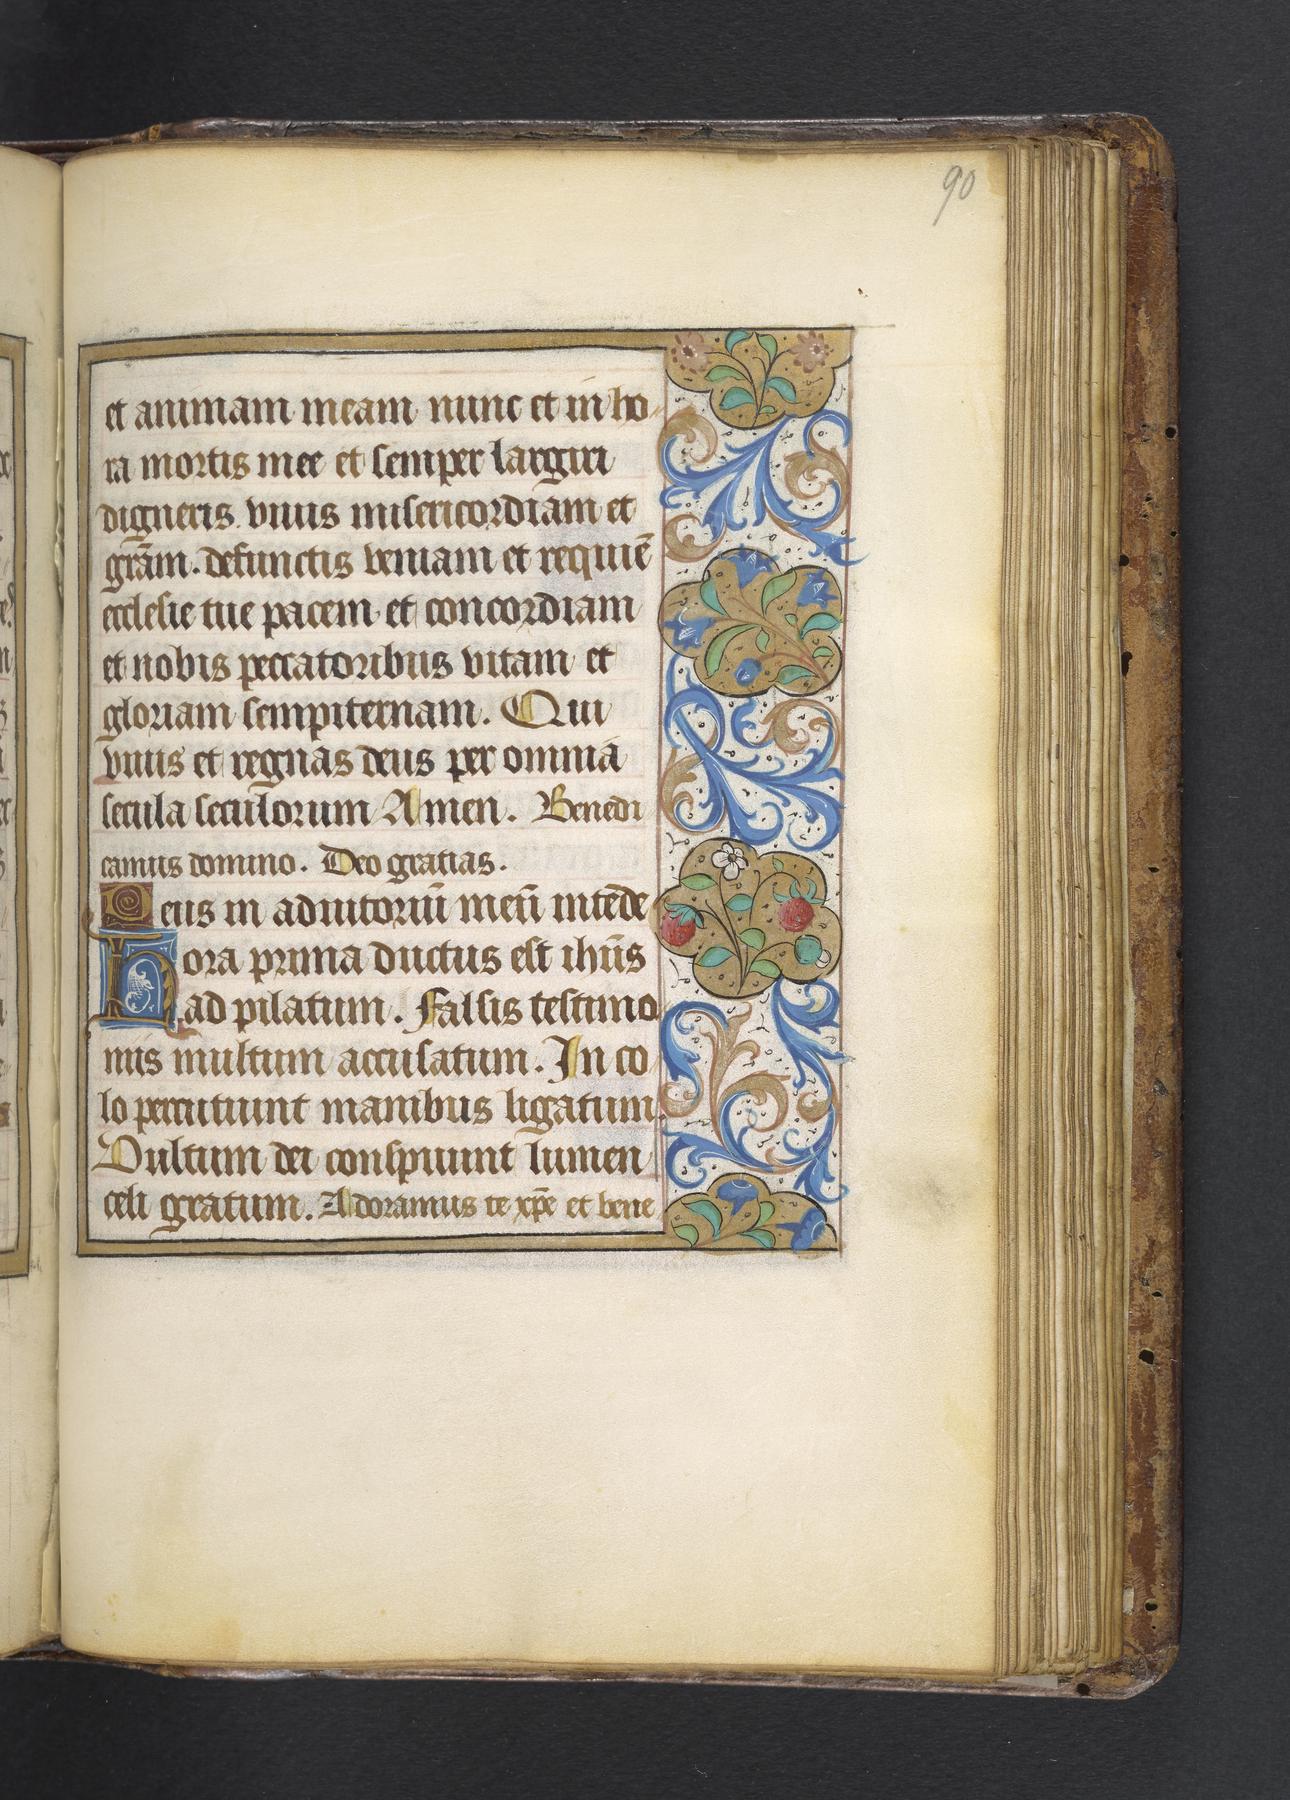 90
et animam meam nunc et in ho
ra mortis mee et semper largiri
digneris. viuis misericordiam et
grãm. defunctis veniam et requiẽ
ecclesie tue pacem et concordiam
et nobis peccatoribus vitam et
gloriam sempiternam. Qui
viuis et regnas deus per omnia
secula seculorum Amen. Benedi
camus domino. Deo gratias.
Deus in adiutoriũ meũ intẽde
Hora prima ductus est ihũs
ad pilatum. Falsis testimo
niis multum accusatum. In co
lo percutiunt manibus ligatum.
Vultum dei conspuunt lumen
celi gratum. Adoramus te xp̃e et bene